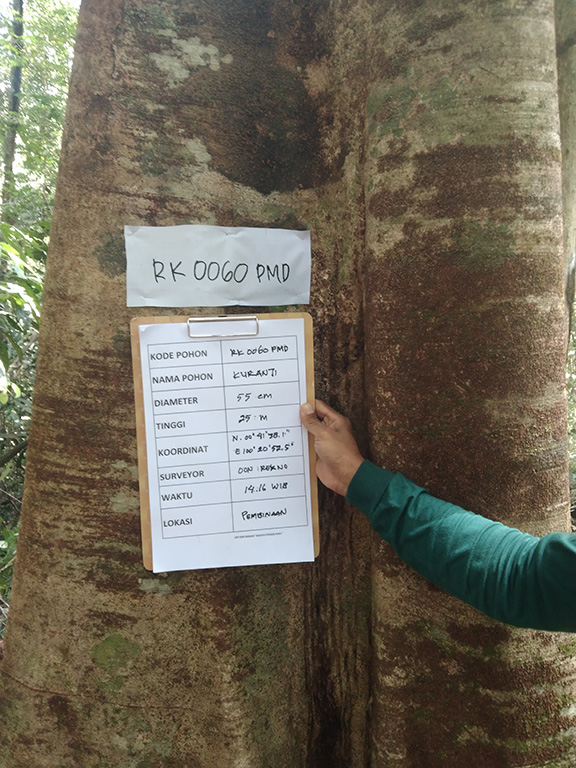 RK 0060 PMD
KODE POHON RK 0060 PMD
NAMA POHON KURANJI
DIAMETER 55 cm
TINGGI 25 M
KOORDINAT N. 00° 41' 38.1"
E 100° 20' 52.5"
SURVEYOR DONI
WAKTU 14:16 WIB
LOKASI PEMBINAAN